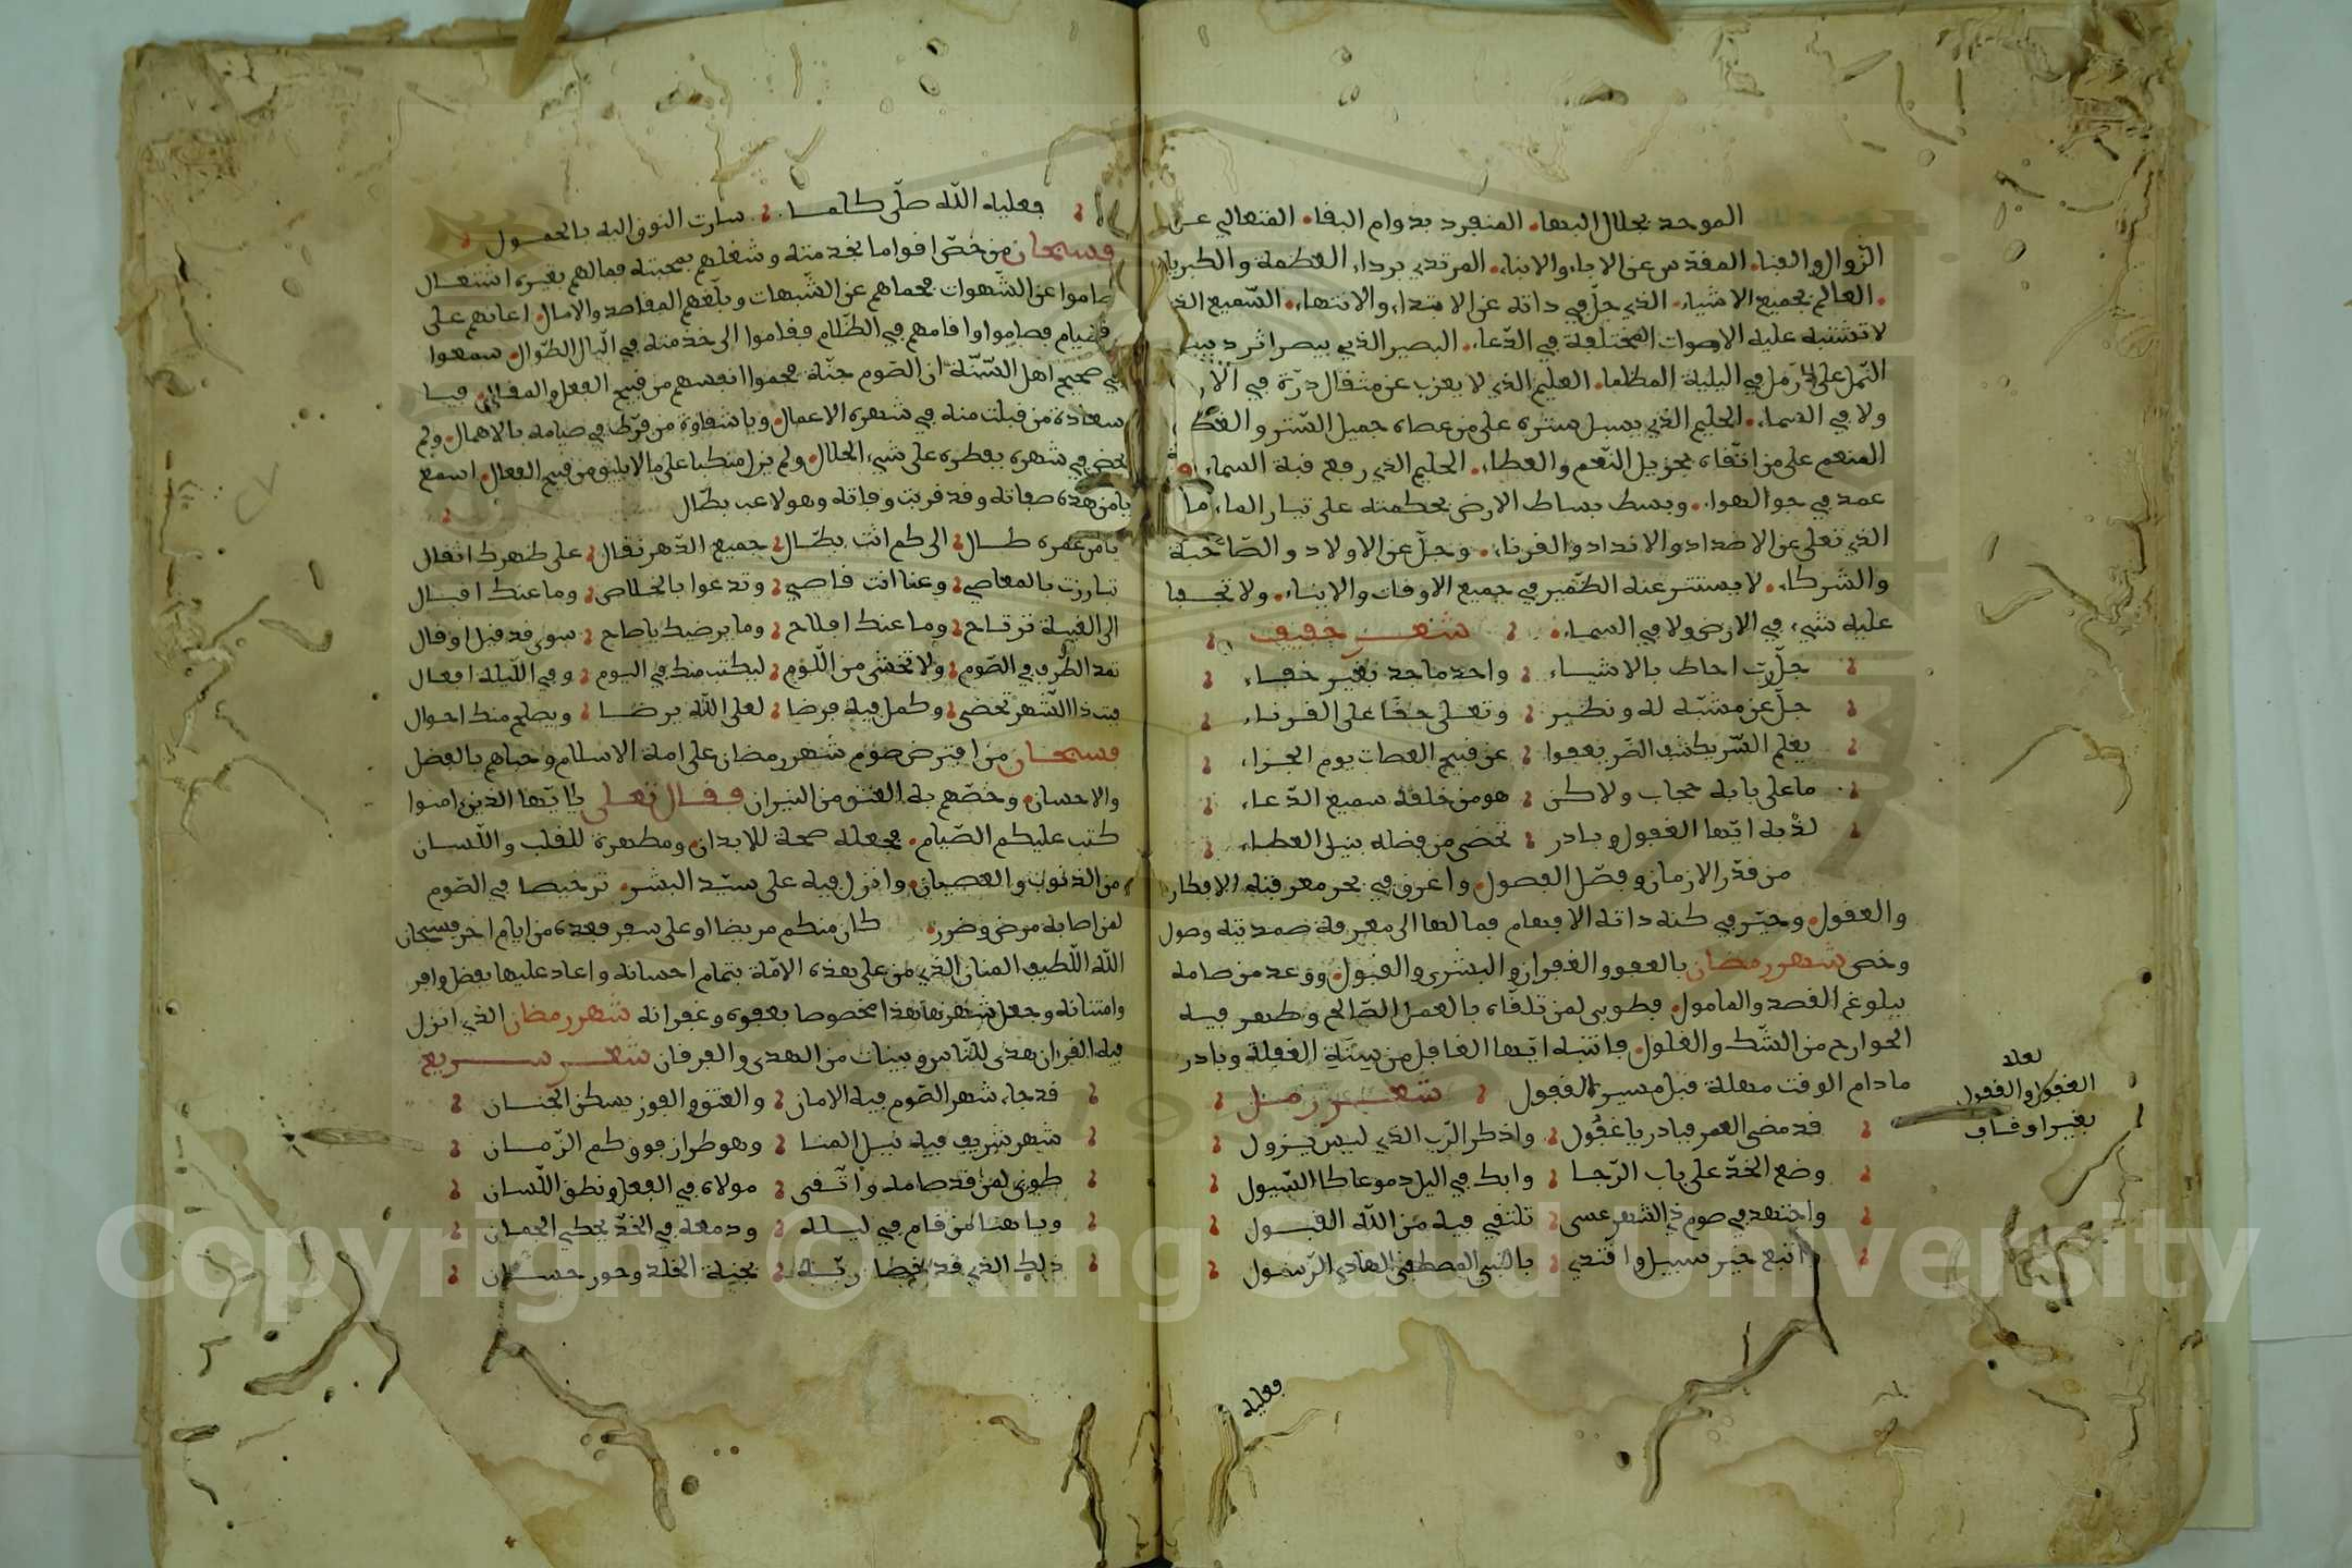 الموحد بجلال البهاء. المنفرد بدوام البقاء. المتعالي عن
الزّوال والفناء. المقدّس عن الاباء والابناء. المرتدي برداء العظمة والكبرياء
العالم بجميع الاشياء. الذي جلّ في ذاته عن الابتداء والانتهاء. السّميع الذ
لا تشتبه عليه الاصوات المختلفة في الدّعاء. البصير الذي يبصر اثر دبيب
النّمل على الرّمل في اليلية الظلما. العليم الذي لا يعزب عن مثقال ذرّة في الار
ولا في السماء. الحليم الذي يسبل ستره على من عصاه جميل السّتر والغط
المنعم على من اتّقاه بجزيل النّعم والعطاء. الحليم الذي رفع قبة السماء
عمد في جو الهواء. وبسط بساط الارض بحكمته على تيار الماء
الذي تعلى عن الاضداد والانداد والقرناء. وجلّ عن الاولاد والصّاحبة
والشركاء. لا يستتر عنه الضّمير في جميع الاوقات والانباء. ولا تخـفا
عليه شيء في الارض ولا في السماء. شعـر خفيف
جلّ رب احاط بالاشياء واحد ماجد بغير خفاء
جلّ عن مشبّه له ونظير وتعلى حقا على القرناء
يعلم السّر يكشف الضّر يعفوا عن قبيح العصات يوم الجزاء
ما على بابه حجاب ولاكن هو من خلقه سميع الدّعاء
لذْ به ايّها الغفول وبادر تحضى من فضله بنيل العطاء
من قدّر الازمان وفصّل الفصول. واغرق في بحر معرفته الافكار
والعقول. وحيّر في كنه ذاته الافهام فما لها الى معرفة صمديته وصول
وخص شهر رمضان بالعفو والغفران والبشرى والقبول. ووعد من صامه
ببلوغ القصد والمامول. فطوبى لمن تلقّاه بالعمل الصّالح وطهر فيه
الجوارح من الشّك والغلول. فانتبه ايّها الغافل من سنَة الغفلة وبادر
ما دام الوقت مهلة قبل مسير القفول شعـر رمـل
لعله
الغفول والقفول
بغير اوقاف
قد مضى العمر فبادر يا غفُول واذكر الرّب الذي ليس يزول
وضع الخدّ على باب الرّجا وابك في اليل دموعا كالسّيول
واجتهد في صوم ذا الشهر عسى تلتقي فيه من اللّه القبول
اتبع خير سبيل واقتدي بالنبي المصطفى الهادي الرّسول
فعليه
فعليه اللّه صلّى كلما سارت النوق اليه بالحمول
فسبحان من خصّ اقواما بخدمته وشغلهم بمحبته فما لهم بغيره اشتغال
صاموا عن الشّهوات فحماهم عن الشّبهات وبلّغهم المقاصد والامال. اعانهم على
الصيام فصاموا واقامهم في الظّلام فقاموا الى خدمته في اليال الطّوال. سمعوا
في صحيح اهل السّنّة ان الصّوم جنّة فحموا انفسهم من قبيح الفعل والمقال. فيا
سعادة من قبلت منه في شهره الاعمال. ويا شقاوة من فرّط في صيامه بالاهمال. ولم
يحض في شهره بفطره على شيء الحلال. ولم يزل منكبا على ما لا يليق من قبيح الفعال. اسمع
يا من هذه صفاته وقد قربت وفاته وهو لاعب بطّال
يا من عمره طـال الى كم انت بطّـال جميع الدّهر نقال على ظهرك اثقال
تبارزت بالمعاصي وعنا انت قاصي وتدعوا بالخلاص وما عندك اقبـال
الى الغيبـة ترتـاح وما عندك افلاح وما يرضيك يا صاح سوى قد قيل او قال
تمد الطّرف في الصّوم ولا تخشى من اللّوم ليكتب منك في اليوم وفي اللّيلة افعال
فبذا الشهر تحضى وكمل فيه فرضا لعل اللّه يرضـا ويصلح منك احوال
فسبحـان من افترض صوم شهر رمضان على امة الاسلام وحباهم بالفضل
والاحسان. وخصّهم به العتق من النيران فقـال تعـلى يا ايّها الذين امنوا
كتب عليكم الصّيام. فجعله صحة للابدان. ومطهرة للقلب واللّسان
من الذنوب والعصيان. وانزل فيه على سيّد البشر. ترخيصا في الصّوم
لمن اصابه مرض وضرر. كان منكم مريضا او على سفر فعدة من ايام اخر فسبحان
اللّه اللّطيف المنان الذي من على هذه الامّة بتمام احسانه واعاد عليها بفضل وافر
وامتنانه وجعل شهرها هذا مخصوصا بعفوه وغفرانه شهر رمضان الذي انزل
فيه القران هدى للنّاس وبينات من الهدى والفرقان شعـر سـريع
قد جاء شهر الصّوم فيه الامان والعتق والفوز بسكن الجنـان
شهر شريف فيه نيل المنا وهو طراز فوق كم الزّمـان
طوبى لمن قد صامه واتّـقى مولاه في الفعل ونطق اللّسان
ويا هنا من قام في ليـله ودمعه في الخدّ يحكي الجمـان
ذلك الذي قد خصّه ربّـه بجنة الخلد وحور حسـان
Copyright © King Saud University